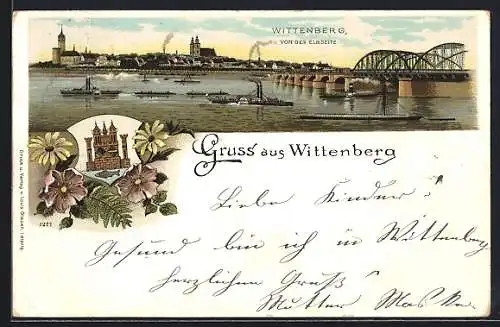 WITTENBERG,
VON DER ELBSEITE
Gruss aus Wittenberg
Liebe Kinder!
Gesund bin ich in Wittenberg
herzlichen Gruß
Mutter
Druck u. Verlag v. Louis Glaser, Leipzig.